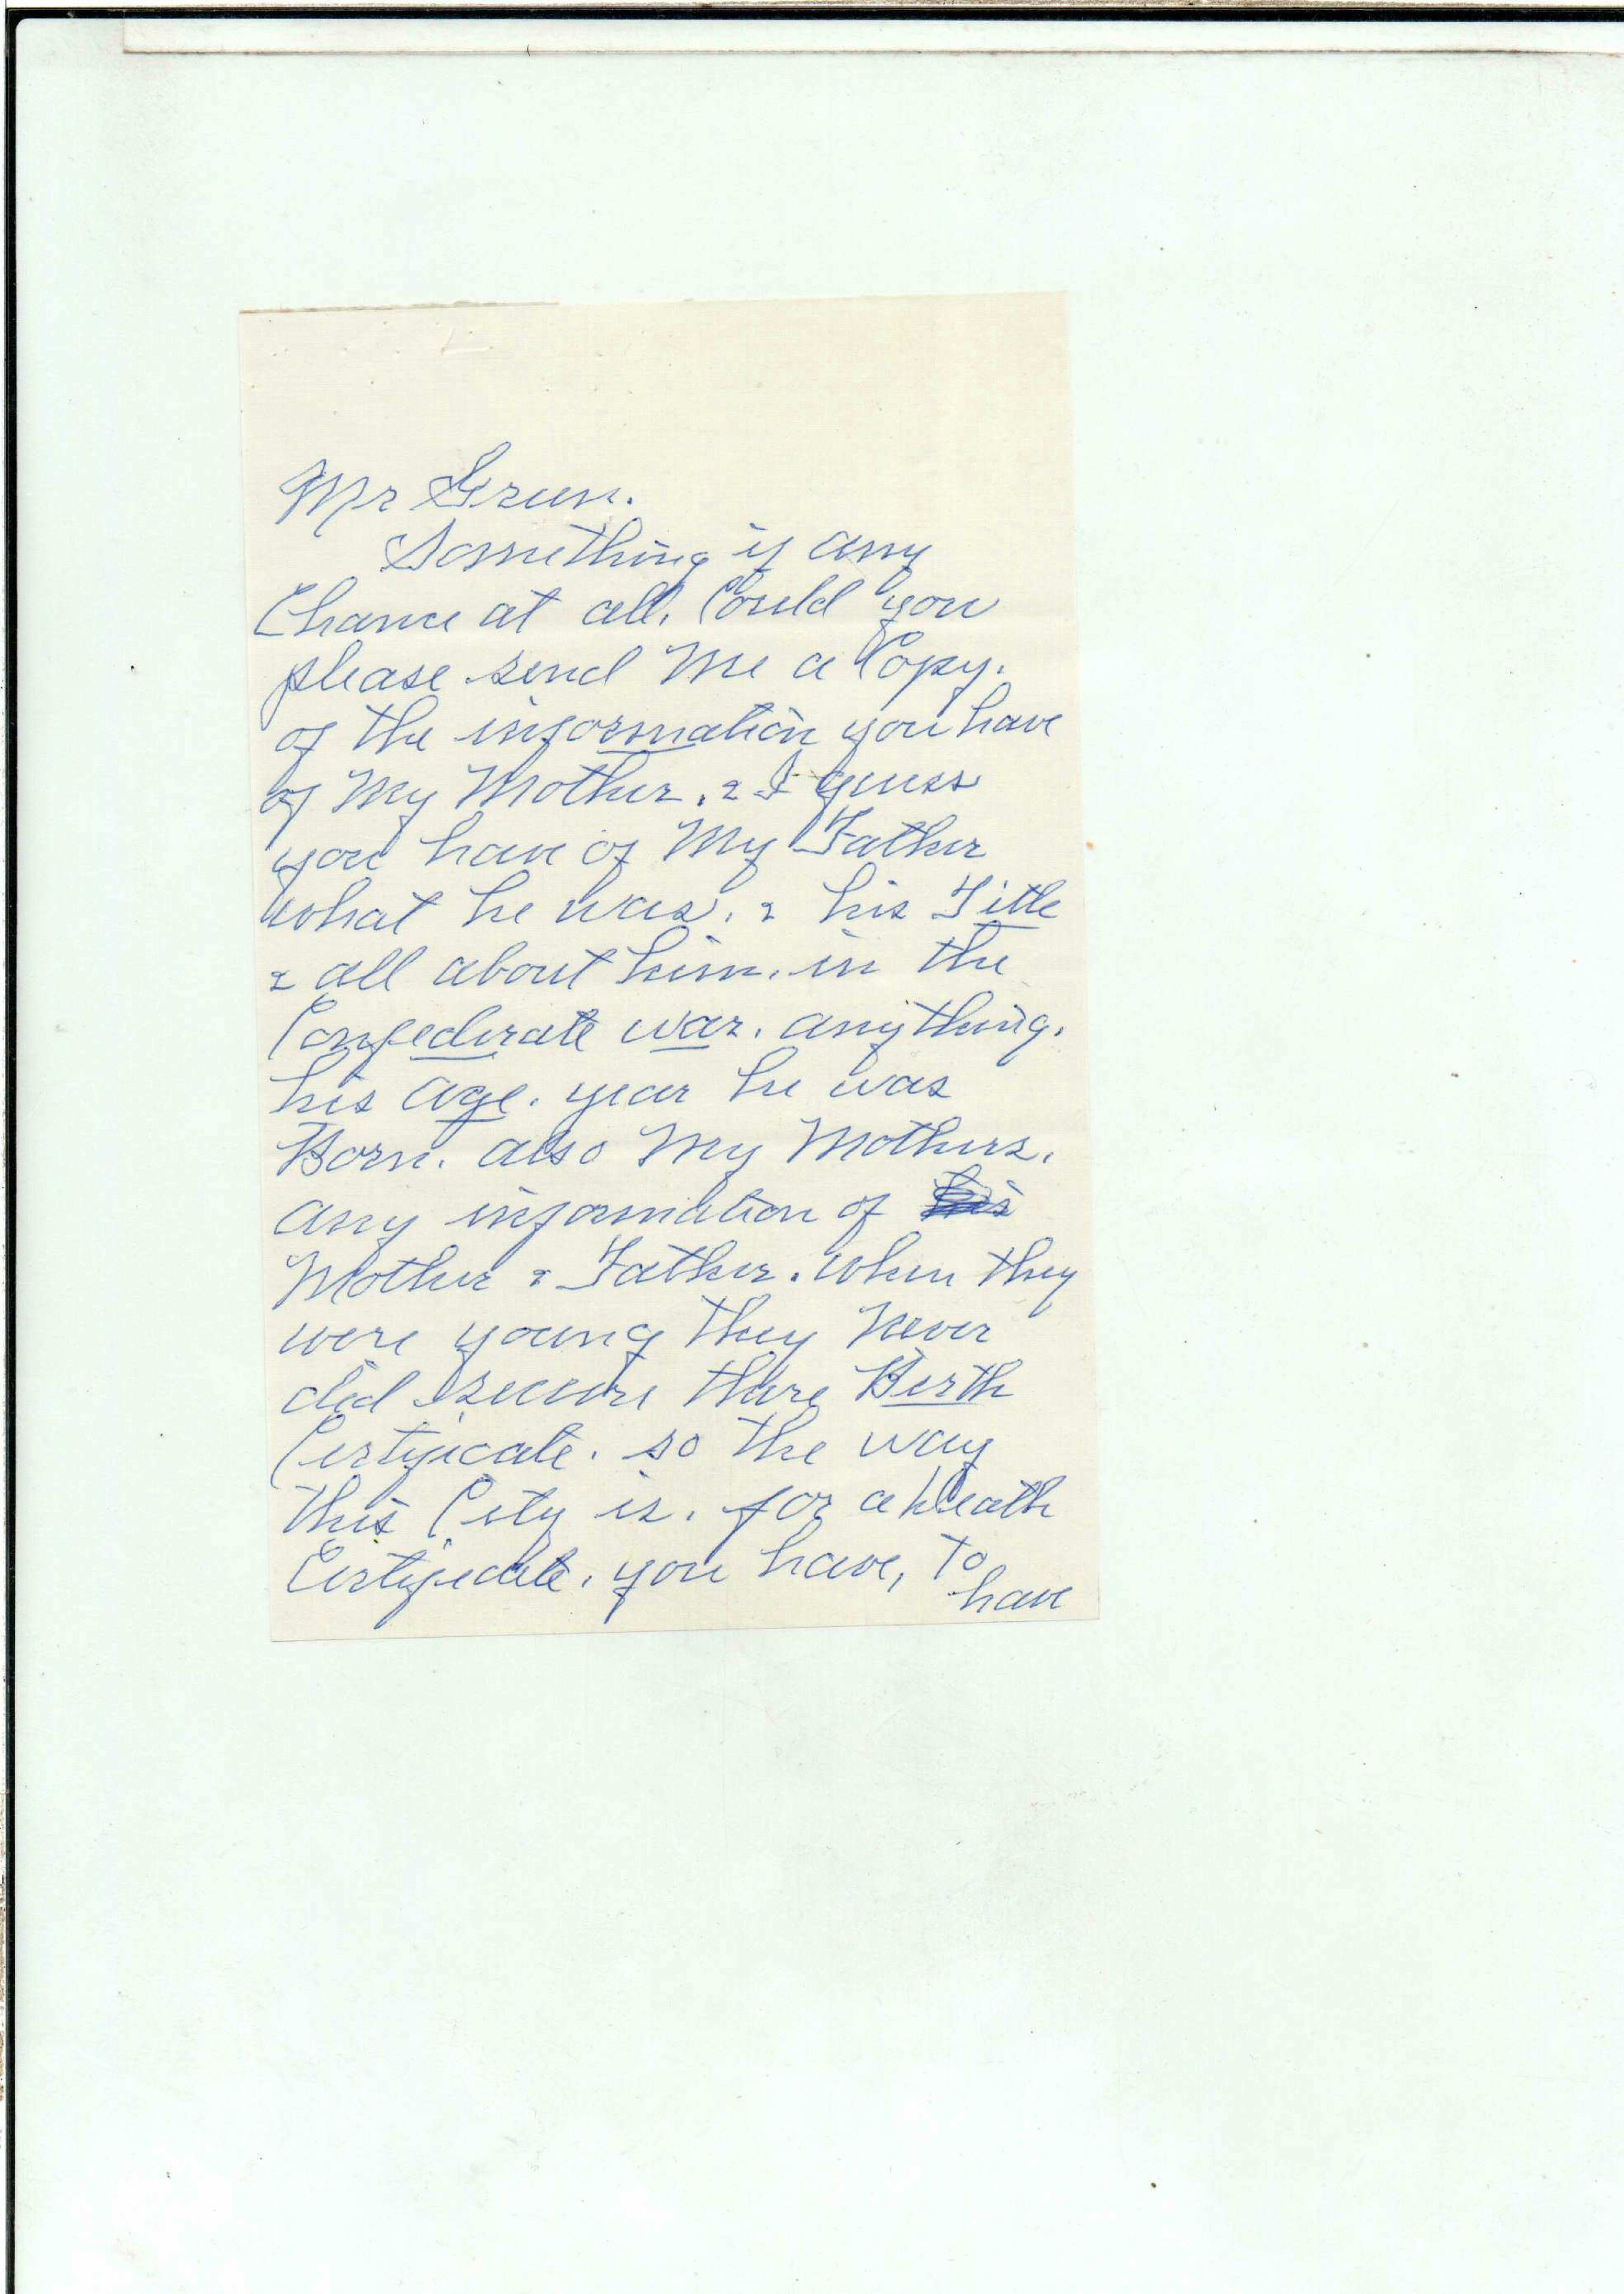 Mr Green.
Something if any
Chance at all. Could you
please send Me a Copy.
of the information you have
of My Mother. & I guess
you have of My Father
what he was. & his Title
& all about him. in the
Confederate war. anything.
his age. year he was
Born. also My Mothers.
any information of his
Mother & Father. when they
were young they Never
did secure there Birth
Certificate. so the way
this City is. for a Death
Certificate. you have, to
have